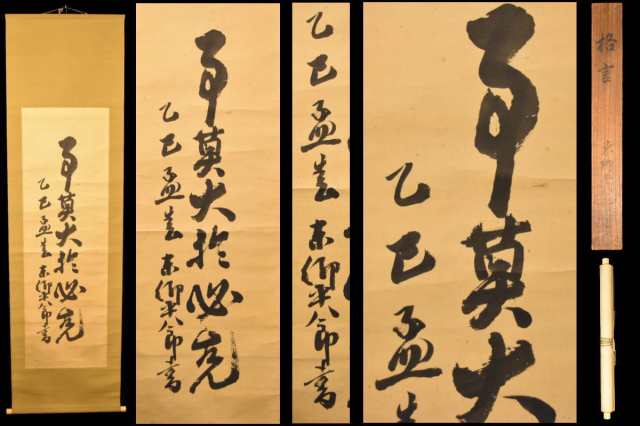 事莫大於必克
乙巳孟春 東郷平八郎書
事莫大於必克
乙巳孟春 東郷平八郎書
乙巳孟春 東郷平八郎書
事莫大
乙巳孟春
格言